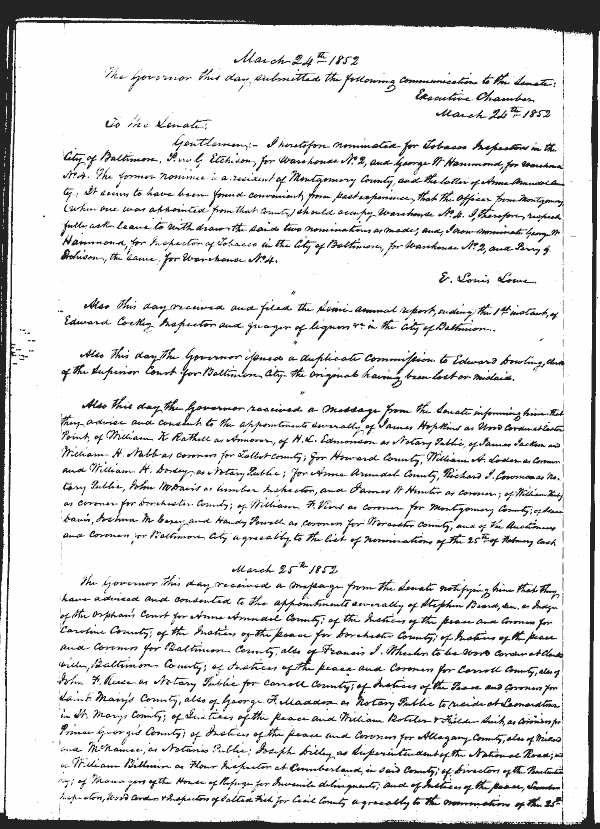 March 24th 1852
The Governor this day, submitted the following communication to the Senate:
Executive Chamber
March 24th 1852
To the Senate,
Gentlemen:- I heretofore nominated for Tobacco Inspectors in the
City of Baltimore, Perry G. Etchison, for Warehouse No. 2, and George W Hammond, for Warehouse
No 4. The former nominee is a resident of Montgomery County, and the latter of Anne Arundel
ty; It seems to have been found convenient, from past experience, that the officer from Montgomery,
(when one was appointed from that County) should occupy Warehouse No 4. I, therefore, respect
fully ask leave to withdraw the said two nominations as made; and, I now nominate George W
Hammond, for Inspector of Tobacco in the City of Baltimore, for Warehouse No 2, and Perry G.
Etchison, the same, for Warehouse No 4.
E. Louis Lowe
Also this day received and filed the Semi-annual report, ending the 1st instant, of
Edward Inspector and guager of liquors &c in the City of Baltimore.
Also this day the Governor issued a duplicate Commission to Edward Dowling, clerk
of the Superior Court for Baltimore City the original having been lost or mislaid.
Also this day the Governor received a message from the Senate informing him that
they advise and consent to the appointments severally, of James Hopkins as Wood Corder at
Point, of William K Rathell as Armorer, of H. L. Edmonson as Notary Public, of James Jackson and
William H. Nabb as coroners for Talbot County; for Howard County, William A. as Coroner
and William H. Dorsey, as Notary Public; for Anne Arundel County, Richard J. as No-
tary Public, John McDavis as lumber Inspector, and James W Hunter as coroner; of William
as coroner for Dorchester County; of William F. Viers as coroner for Montgomery County; of
Davis, Joshua M. and Handy Powell as coroners for Worcester County, and of the Auctioneers
and Coroner, for Baltimore City agreeably to the list of nominations of the 25th of February last
March 25th 1852
The Governor this day received a message from the Senate notifying him that they
have advised and consented to the appointments severally of Stephen Beard, sen. as Judge
of the Orphan's Court for Anne Arundel County; of the Justices of the peace and Coroners for
Caroline County; of the Justices of the peace for Dorchester County; of Justices of the peace
and coroners for Baltimore County, also of Francis J. Wheeler to be Wood Corder at
ville, Baltimore County; of Justices of the peace and Coroners for Carroll County, also of
John F. Reese as Notary Public for Carroll County; of Justices of the Peace and Coroners for
Saint Mary's County, also of George F. Maddox as Notary Public to reside at Leonardtown
in St. Mary's County; of Justices of the peace and William and as coroners for
Prince George's County; of Justices of the peace and Coroners for Allegany County, also of
and McKaig, as Notaries Public; Joseph Dilley, as Superintendent of the National Road;
William as Flour Inspector at Cumberland, in said County; of Directors of the Peniten
ry; of Managers of the House of Refuge for Juvenile delinquents, and of Justices of the peace, Lumber
Inspectors, Wood Corders & Inspectors of Salted Fish for Cecil County agreeably to the nomination of the 25th